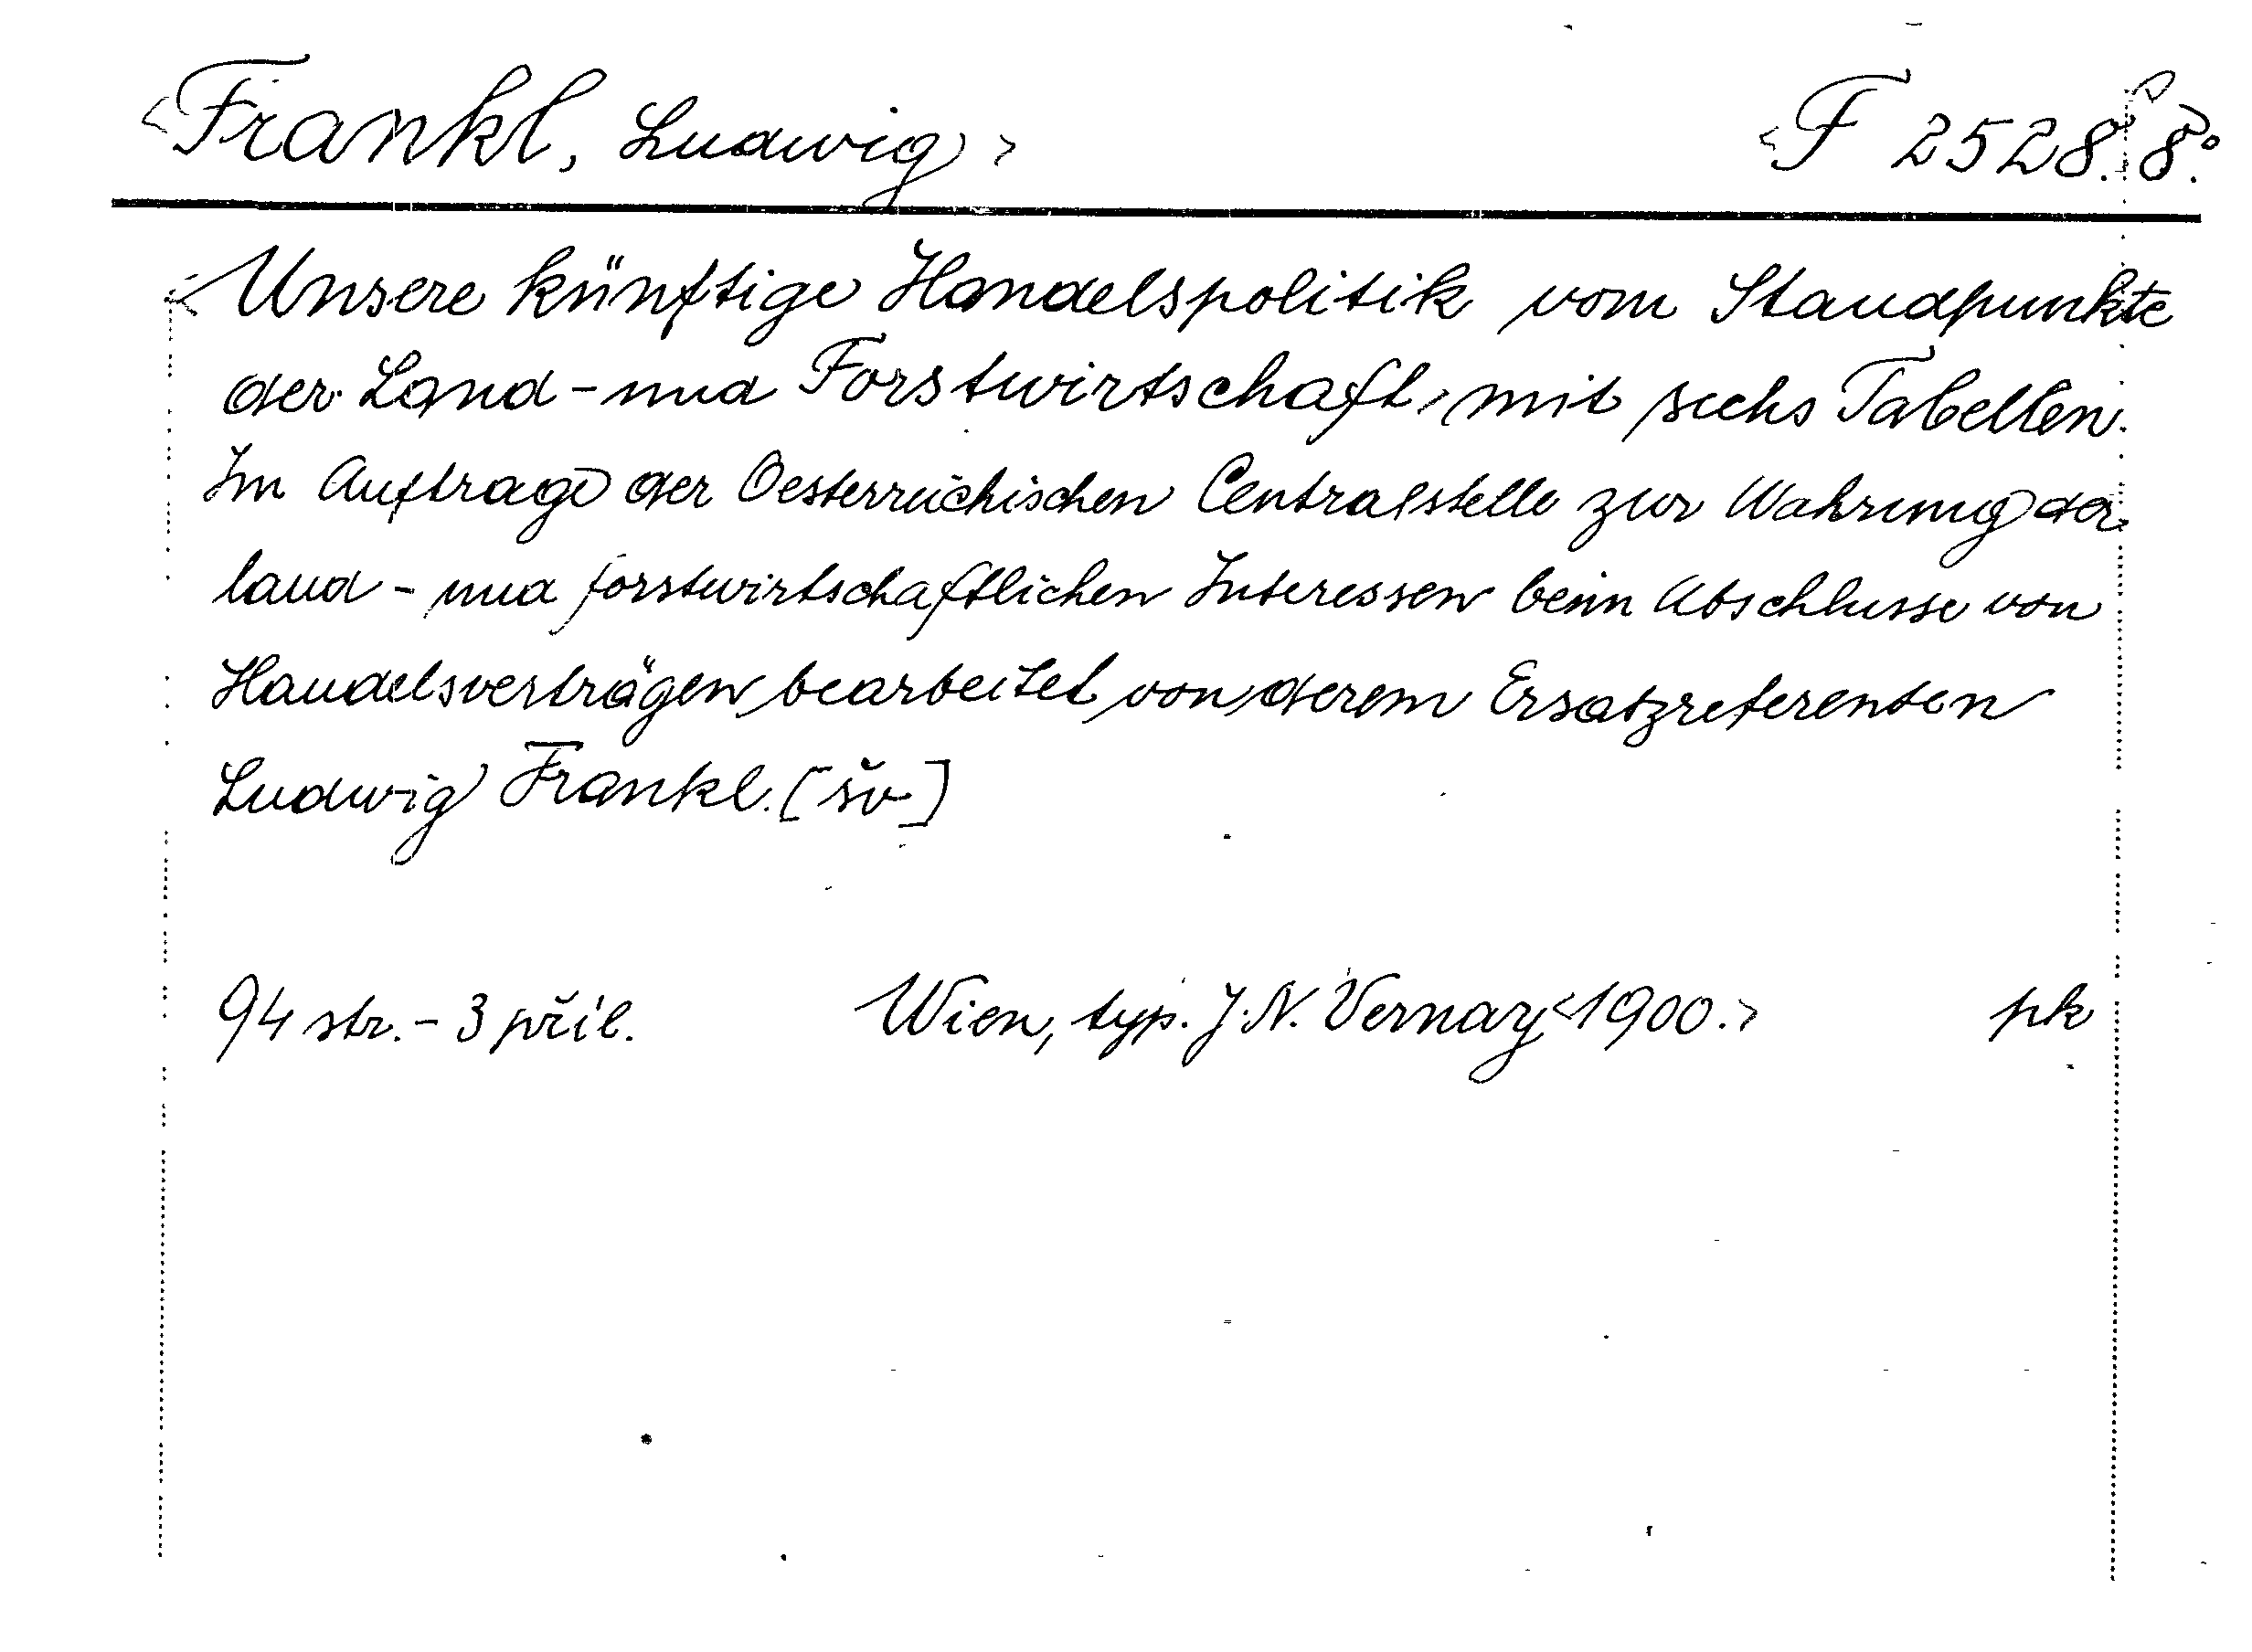 <Frankl, Ludwig> <F 2528. 8°.
<Unsere künftige Handelspolitik vom Standpunkte
der Land- und Forstwirtschaft, > mit sechs Tabellen.
Im Auftrage der Oesterreichischen Centralstelle zur Wahrung der
land- und forstwirtschaftlichen Interessen beim Abschlusse von
Handelsverträgen bearbeitet von derem Ersatzreferenten
Ludwig Frankl. [šv]
94 str. - 3 příl. Wien, typ. J. N. Vernay <1900.> pk